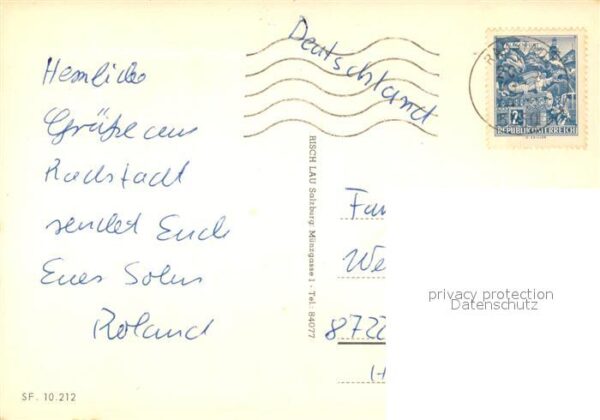 Deutschland
Herzliche
Grüße aus
Radstadt
sendet Euch
Euer Sohn
Roland
RISCH LAU Salzburg Münzgasse 1 - Tel. 84077
Fam
We
8722
privacy protection
Datenschutz
SF. 10.212
2
REPUBLIK ÖSTERREICH